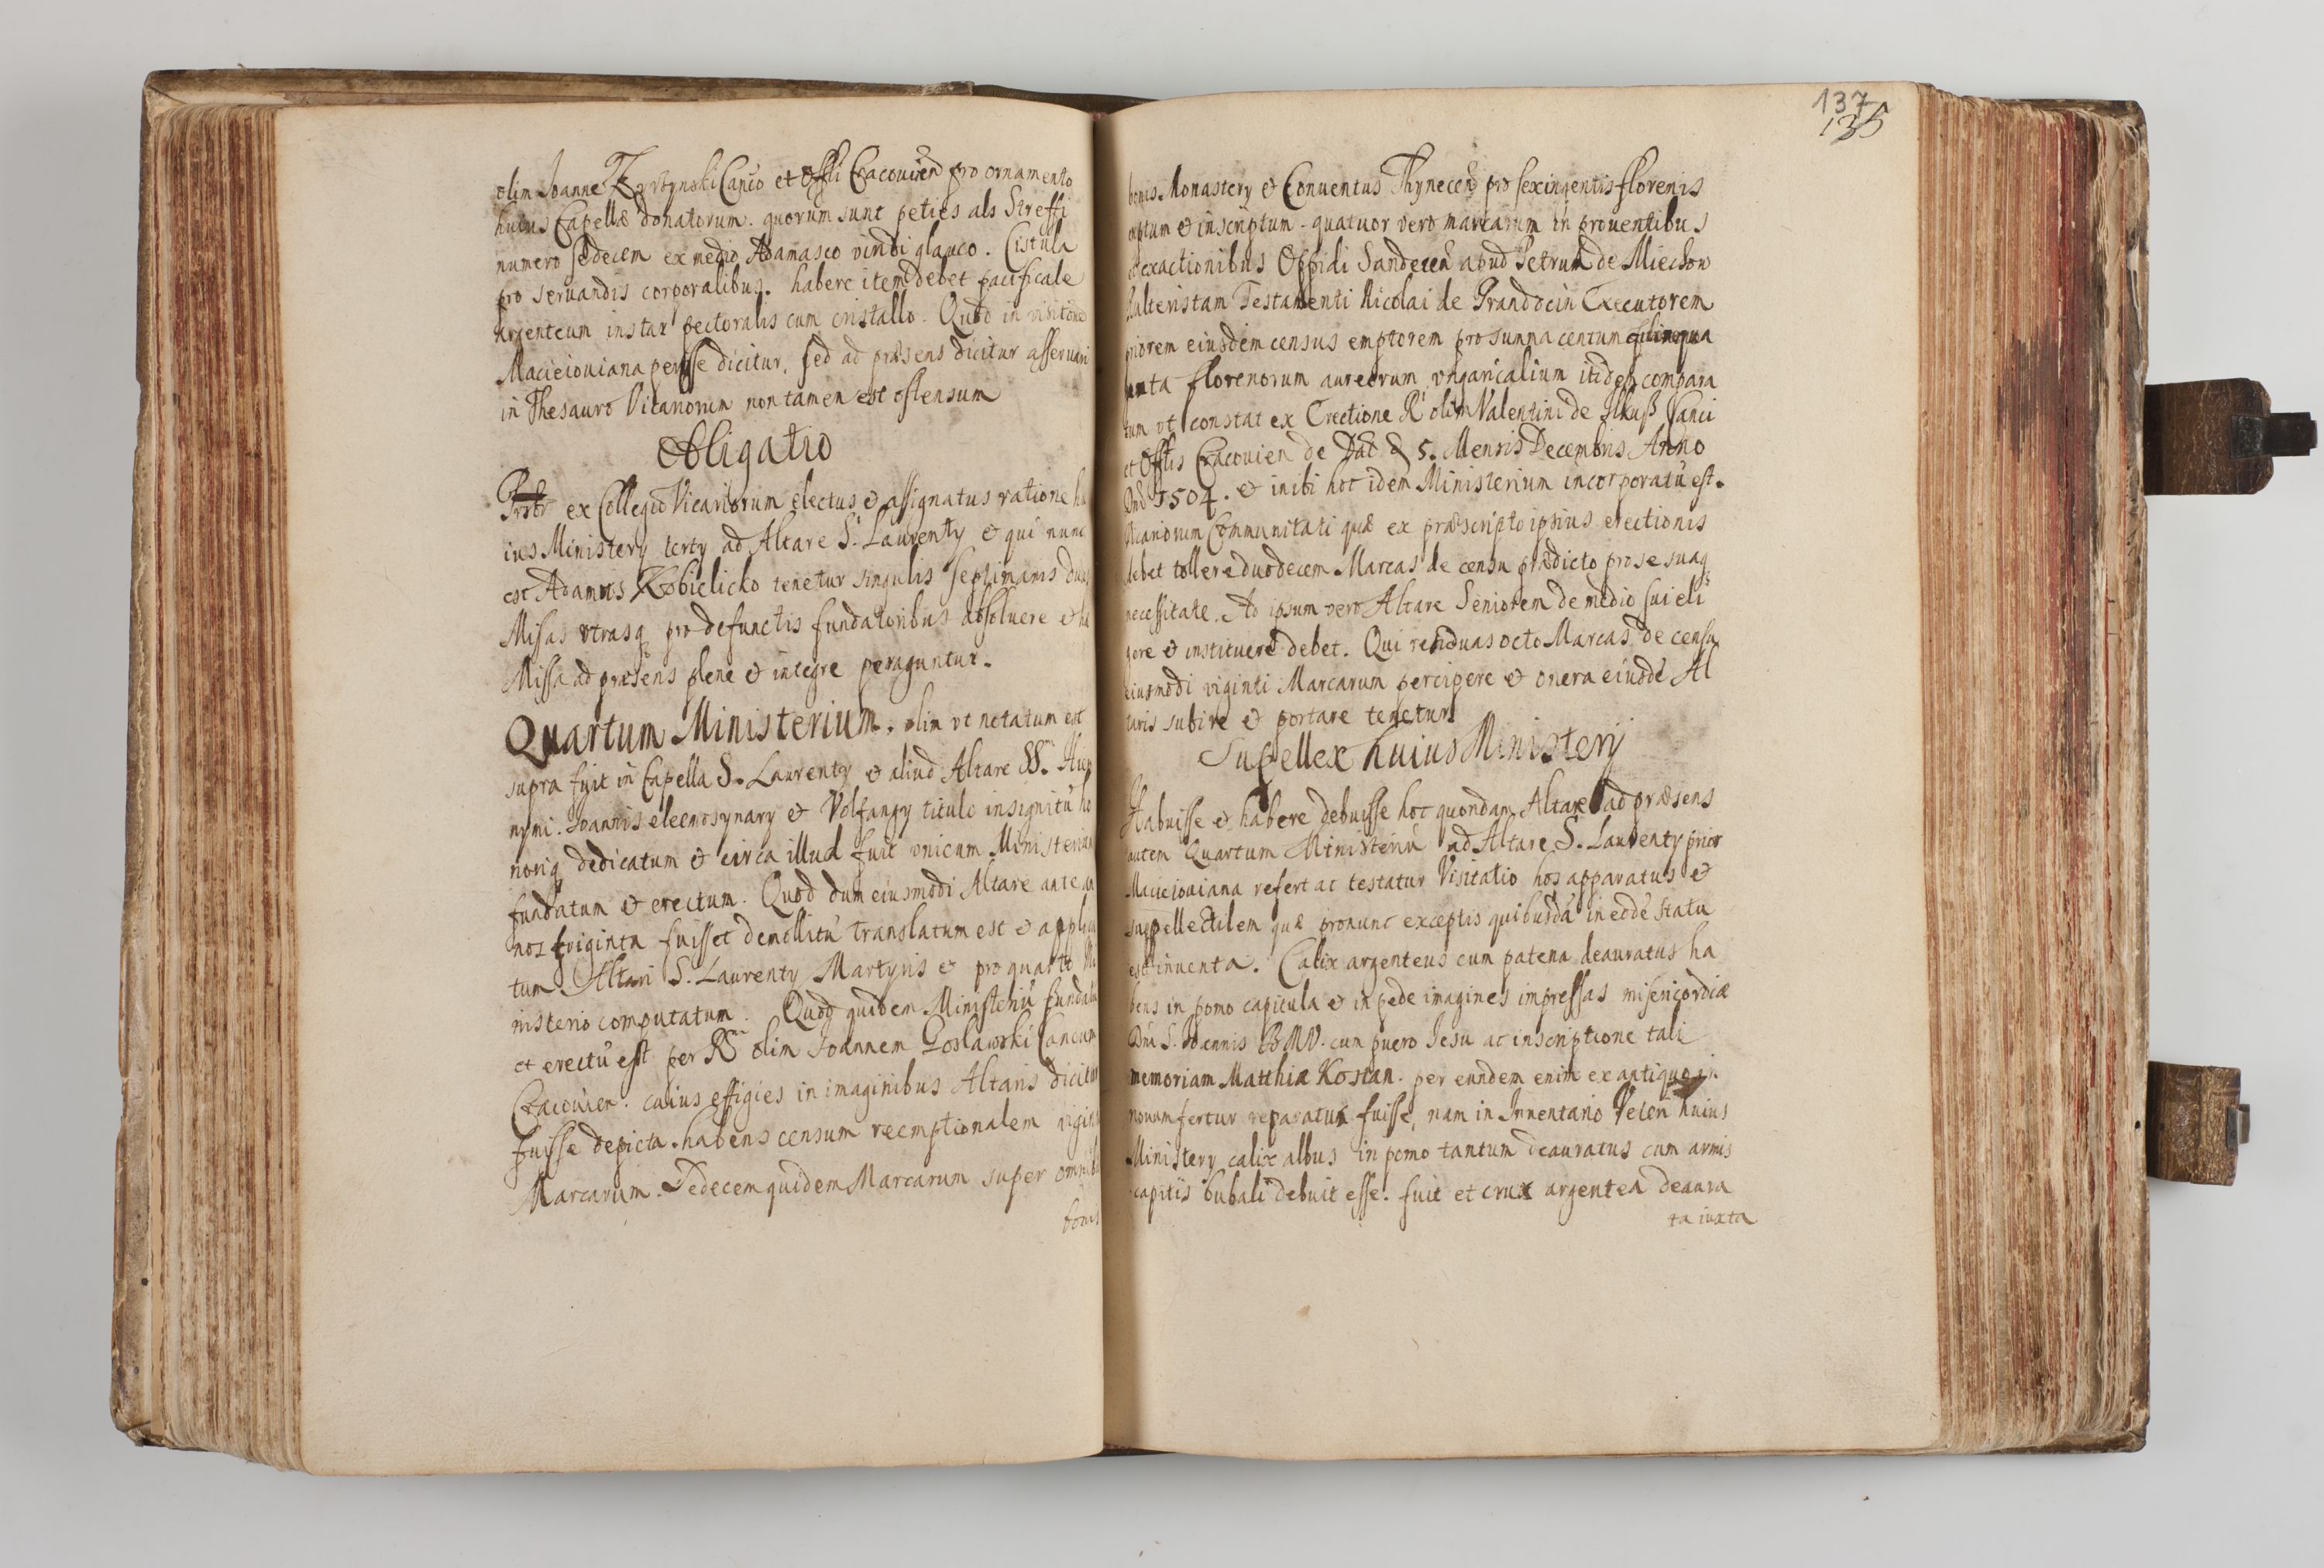 olim Joanne Canco et Offli Cracouien pro ornamento
huius Capellæ donatorum. quorum sunt peties als Streffi
numero sedecem ex medio Adamasco viridi glauco. Cistula
pro seruandis corporalibus. habere item debet pacificale
argenteum instar pectoralis cum cristallo. Quod in visitõne
Macieiouiana perysse dicitur, sed ad præsens dicitur asseruari
in Thesauro Vicariorum non tamen est ostensum
Obligatio
ex Collegio Vicariorum electus & assignatus ratione hu
ius Ministery terty ad Altare S. Laurenty & qui nunc
est Adamus Kobielicko tenetur singulis septimanis duas
Missas vtrasq pro defunctis fundatoribus absoluere & hæ
Missa ad præsens plene & integre peraguntur.
Quartum Ministerium. olim vt notatum est
supra fuit in Capella S. Laurenty & aliud Altare SS. Hiero
nymi. Joannis eleemosynary & Volfangy titulo insignitũ ho
noriq dedicatum & circa illud fuit vnicum Ministerium
fundatum & erectum. Quod dum eiusmodi Altare ante an
nos triginta fuisset demolitũ translatum est & applica
tum Altari S. Laurenty Martyris & pro quarto Mi
nisterio computatum. Quod quidem Ministeriũ fundatũ
et erectũ est per R olim Joannem Goslawski Cancum
Cracouien. cuius effigies in imaginibus Altaris dicitur
fuisse depicta. habens censum reemptionalem viginti
Marcarum. Sedecem quidem Marcarum super omnibus
bonis
137
135
bonis Monastery & Conuentus Thynecen pro sexingentis florenis
emptum & inscriptum. quatuor vero marcarum in prouentibus
& exactionibus Oppidi Sandecen apud Petrum de Miechow
Psalteristam Testamenti Nicolai de Prandocin Executorem
priorem eiusdem census emptorem pro summa centum quinqua
ginta florenorum aureorum vngaricalium itidem compara
tum vt constat ex Erectione R olim Valentini de Ilkusz Canci
et Offlis Cracouien de Dat 5. Mensis Decembris Anno
Dnĩ 1504. & inibi hoc idem Ministerium incorporatũ est.
Vicariorum Communitati quæ ex præscripto ipsius erectionis
debet tollere duodecem Marcas de censu prædicto pro se suaq
necessitate. Ad ipsum vero Altare Seniorem de medio sui eli
gere & instituere debet. Qui residuas octo Marcas de censu
eiusmodi viginti Marcarum percipere & onera eiusdẽ Al
taris subire & portare tenetur
Supellex huius Ministerij
Habuisse & habere debuisse hoc quondam Altare ad præsens
autem Quartum Ministeriũ ad Altare S. Laurenty prior
Macieiouiana refert ac testatur Visitatio hos apparatus &
suppellectilem quæ pronunc exceptis quibusdã in eodẽ statu
est inuenta. Calix argenteus cum patena deauratus ha
bens in pomo capicula & in pede imagines impressas misericordiæ
Dni S. Joannis BMV. cum puero Jesu ac inscriptione tali
memoriam Matthiæ Kostan. per eundem enim ex antiquo in
nouum fertur reparatus fuisse, nam in Inuentario Veteri huius
Ministery calix albus in pomo tantum deauratus cum armis
capitis bubali debuit esse. fuit et crux argentea deaura
ta iuxta